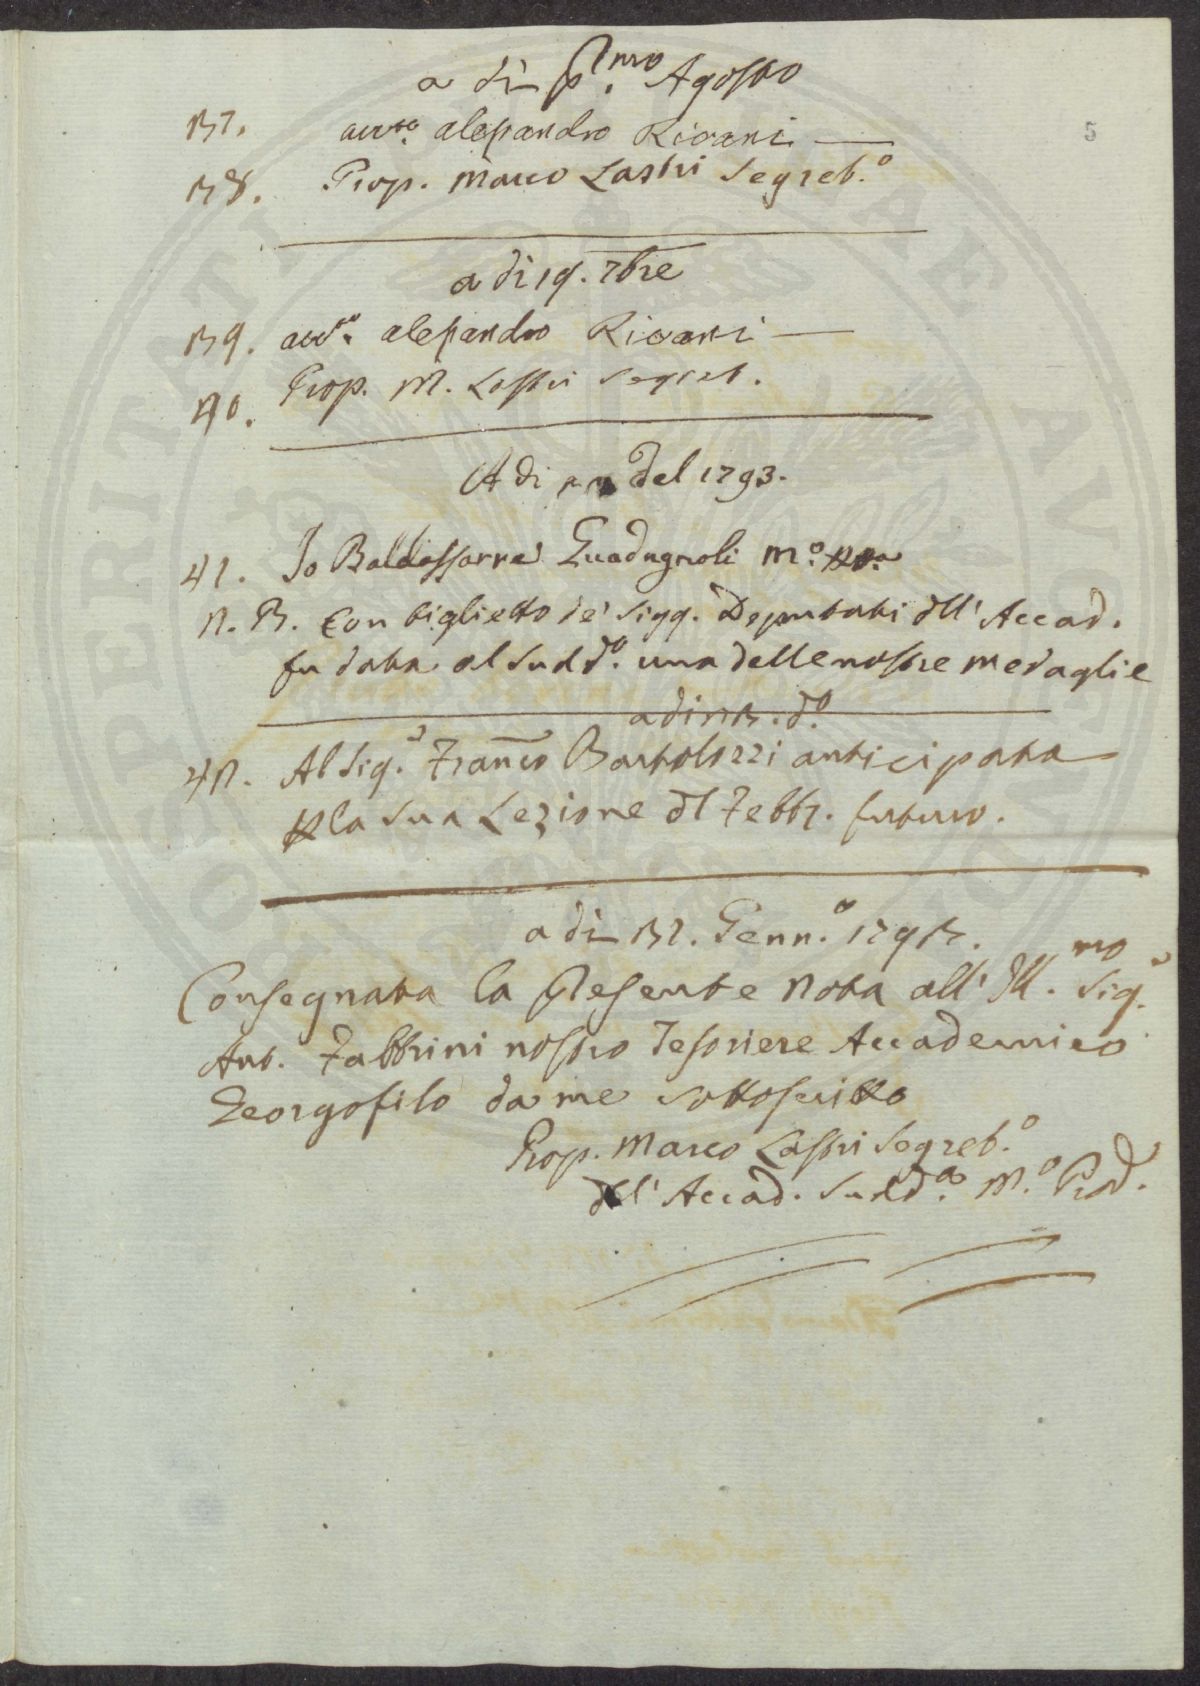 a dì p.mo Agosto
5
37. avv.to alessandro Rivani
38. Prop. Marco Lastri Segret.o
a dì 19. 7bre
39. avv.to alessandro Rivani
40. Prop. M. Lastri Segret.
A di del 1793.
41. Io Baldassarre Guadagnoli M.o
N. B. Con biglietto de' Sigg. Deputati dell' Accad.
fu data al Sudd.o una delle nostre medaglie
a di d.o
42. Al Sig.r Franco Bartolozzi anticipata
p la sua Lezione dl Febbr. futuro.
a dì 31. Genn.o 1793.
Consegnata la presente Nota all' Ill.mo Sig.r
Ant. Fabbrini nostro Tesoriere Accademico
Georgofilo da me sottoscritto
Prop. Marco Lastri Segret.o
dell' Accad. Sudd.a M.o Prod.